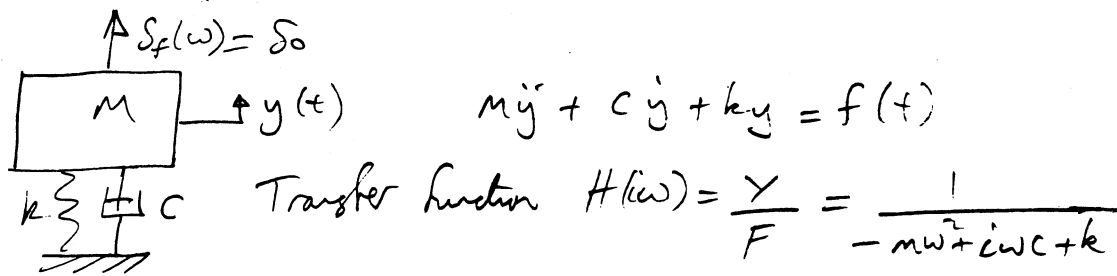 S_f(ω) = S_0
M
y(t)
mÿ + cẏ + ky = f(t)
k
c
Transfer function H(iω) = Y/F = 1/(-mω² + iωc + k)